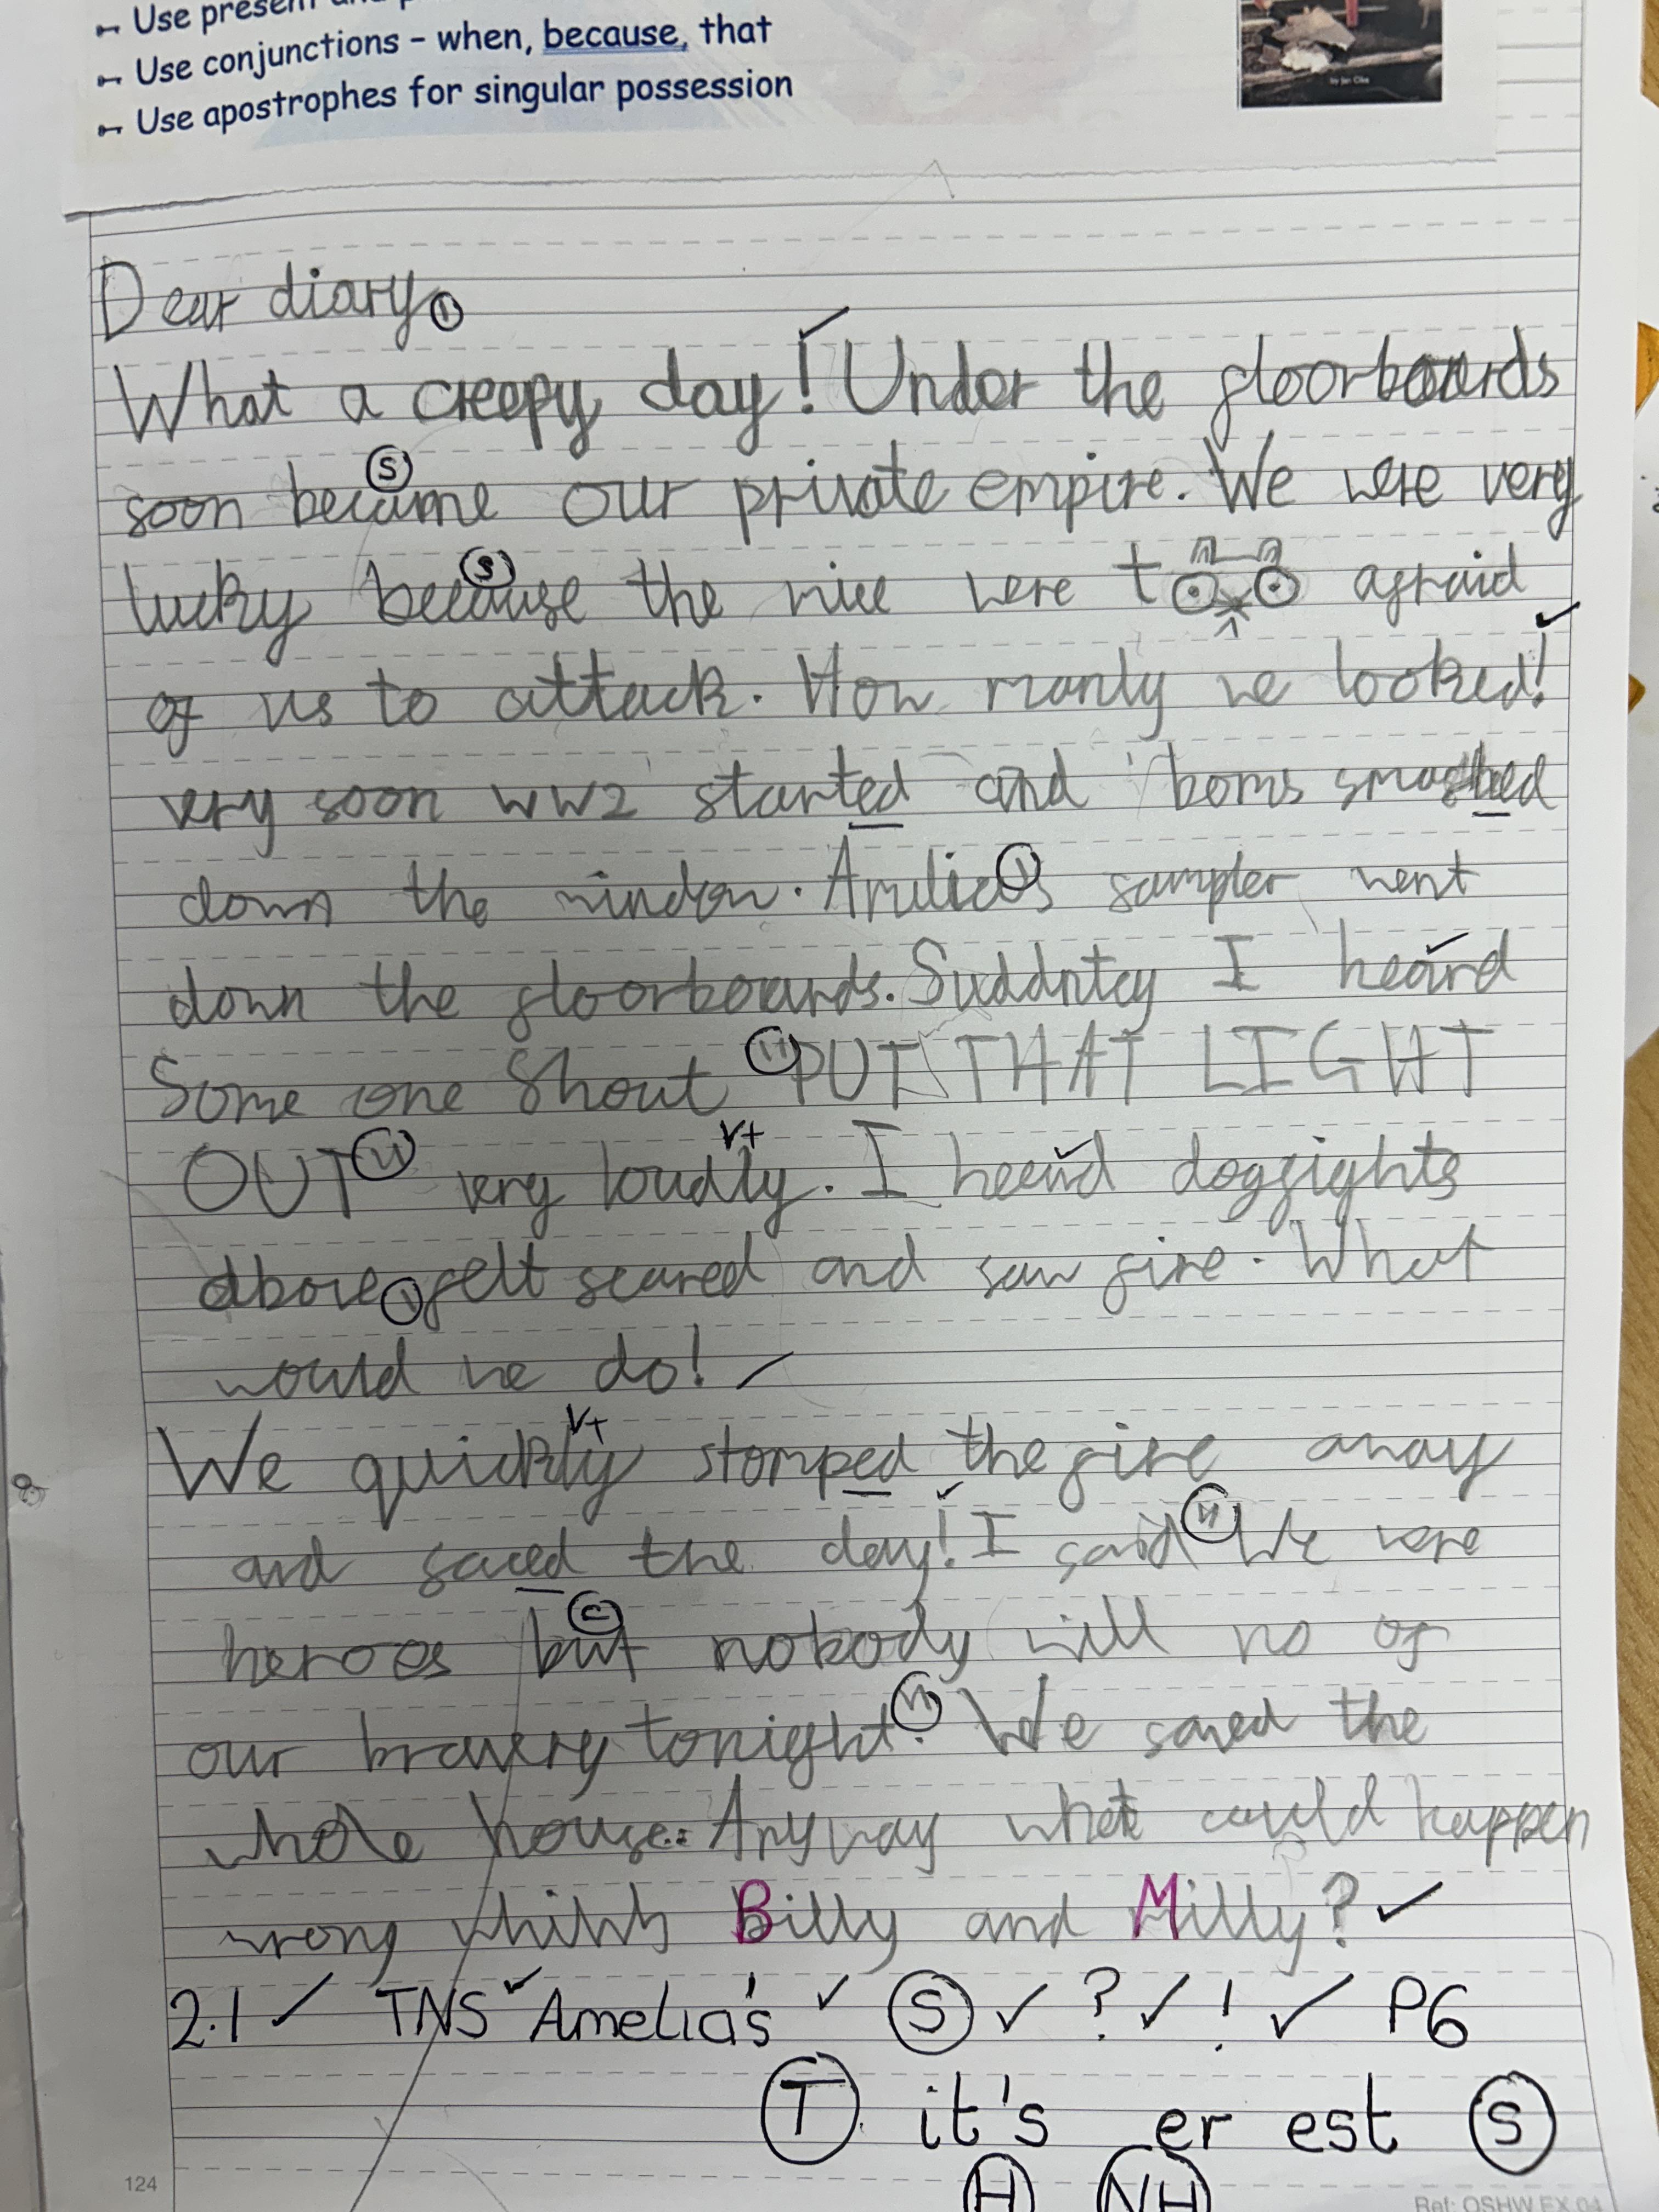 Use present and
Use conjunctions – when, because, that
Use apostrophes for singular possession
by Jan Clike
Dear diary,
What a creepy day! Under the floorboards
soon became our private empire. We were very
lucky because the mice were too afraid
of us to attack. How manly we looked!
very soon WW2 started and boms smashed
down the window. Amelia's sampler went
down the floorboards. Suddntey I heard
Some one Shout "PUT THAT LIGHT
OUT" very loudly. I heard dogfights
above, felt scared and saw fire. What
would we do!
We quickly stomped the fire away
and saved the day! I said "We were
heroes but nobody will no of
our bravery tonight." We saved the
whole house. Anyway what could happen
wrong Billy and Milly?
2.1 TNS Amelia's S ? ! P6
T it's er est S
H NH
124
Ref: OSHW EX 04